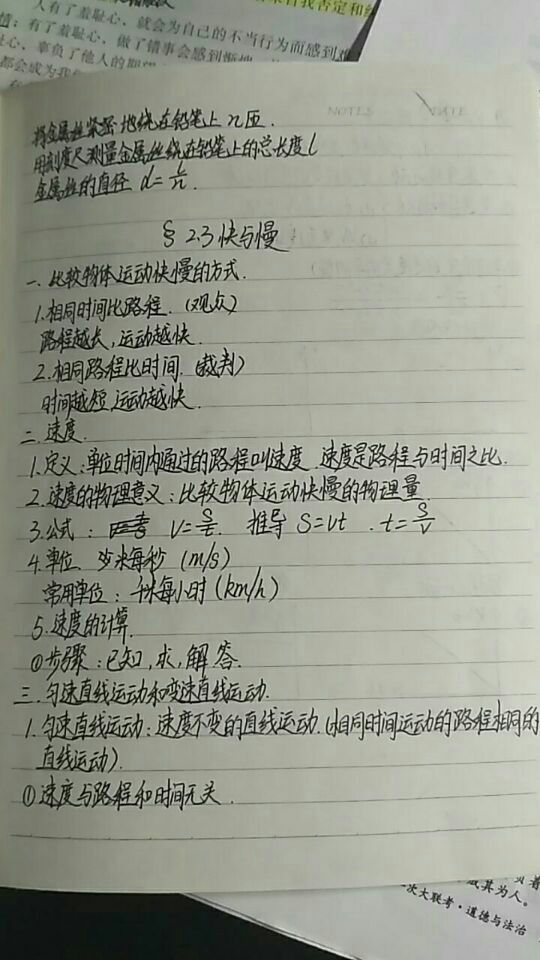 人有了羞耻心，就会为自己的不当行为而感到难
有了羞耻心，做了错事会感到惭愧
耻心，辜负了他人的期望
都会成为我们
将金属丝紧密地绕在铅笔上n匝.
用刻度尺测量金属丝绕在铅笔上的总长度l
金属丝的直径 d=L/n.
§ 2.3 快与慢
一. 比较物体运动快慢的方式.
1.相同时间比路程. (观众)
路程越长,运动越快.
2.相同路程比时间. (裁判)
时间越短,运动越快.
二. 速度.
1.定义:单位时间内通过的路程叫速度.速度是路程与时间之比.
2.速度的物理意义:比较物体运动快慢的物理量.
3.公式: V=S/t. 推导 S=vt . t=S/V
4.单位. 米每秒 (m/s)
常用单位: 千米每小时 (km/h)
5.速度的计算.
①步骤:已知,求,解答.
三. 匀速直线运动和变速直线运动.
1.匀速直线运动:速度不变的直线运动.(相同时间运动的路程相同的
直线运动).
①速度与路程和时间无关.
其为人。
次大联考·道德与法治